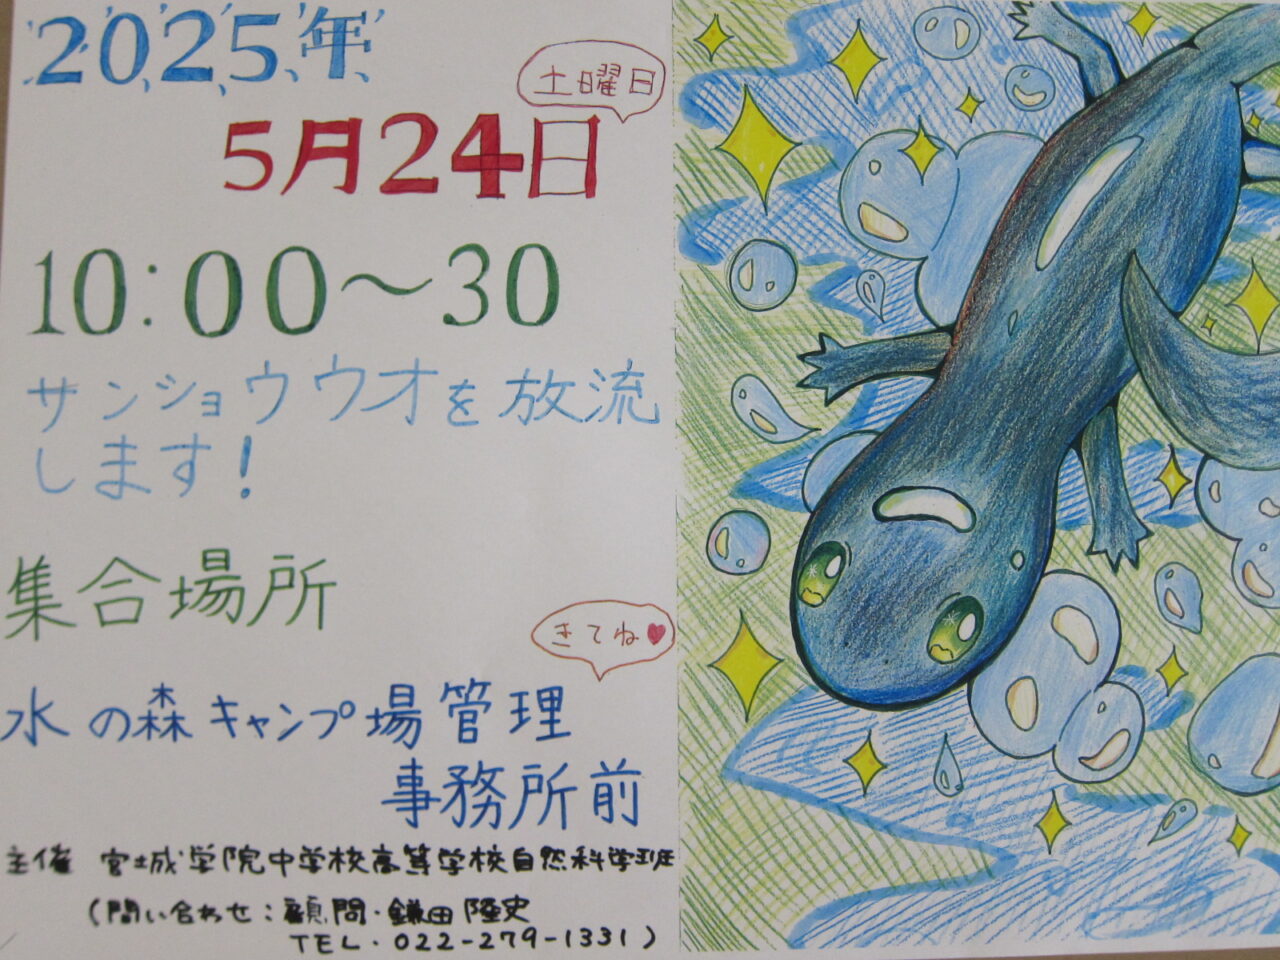 2025年
土曜日
5月24日
10:00〜30
サンショウウオを放流
します!
集合場所
きてね
水の森キャンプ場管理
事務所前
主催 宮城学院中学校高等学校自然科学班
(問い合わせ:顧問・鎌田隆史
TEL・022-279-1331)